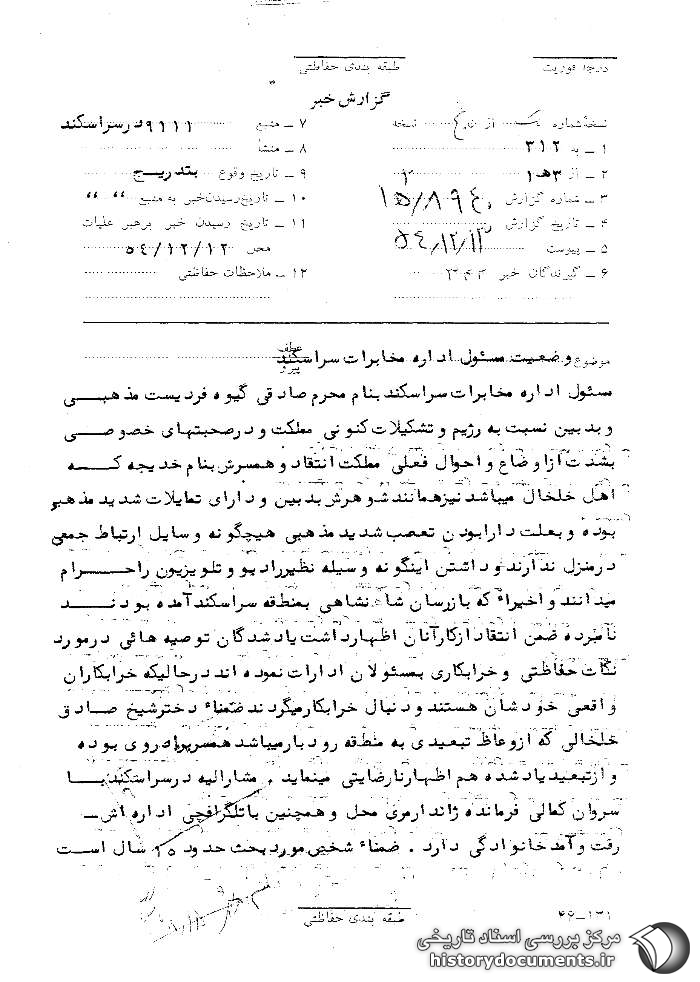 درجه فوریت
طبقه بندی حفاظتی
گزارش خبر
نسخه شماره یک از نسخه
۷ ـ منبع ۹۱۱۱ در سراسکند
۱ ـ به ۳۱۲
۸ ـ منشأ
۲ ـ از ۳هـ۱
۹ ـ تاریخ وقوع بتدریج
۳ ـ شماره گزارش
۱۰ ـ تاریخ رسیدن خبر به منبع " "
۴ ـ تاریخ گزارش ۵۴/۱۲/۱۳
۱۱ ـ تاریخ رسیدن خبر برهبر عملیات
۵ ـ پیوست
محل ۵۴/۱۲/۱۲
۶ ـ گیرندگان خبر
۱۲ ـ ملاحظات حفاظتی
موضوع وضعیت مسئول اداره مخابرات سراسکند
عطف
پیرو
مسئول اداره مخابرات سراسکند بنام محرم صادقی گیوه فردیست مذهبی
و بدبین نسبت به رژیم و تشکیلات کنونی مملکت و درصحبتهای خصوصی
بشدت از اوضاع و احوال فعلی مملکت انتقاد و همسرش بنام خدیجه که
اهل خلخال میباشد نیز همانند شوهرش بدبین و دارای تمایلات شدید مذهبی
بوده و بعلت دارا بودن تعصب شدید مذهبی هیچگونه وسایل ارتباط جمعی
در منزل ندارند و داشتن اینگونه وسیله نظیر رادیو و تلویزیون را حرام
میدانند و اخیراً که بازرسان شاهنشاهی بمنطقه سراسکند آمده بودند
نامبرده ضمن انتقاد از کار آنان اظهار داشت یاد شدگان توصیه هائی در مورد
نکات حفاظتی و خرابکاری بمسئولان ادارات نموده اند در حالیکه خرابکاران
واقعی خودشان هستند و دنبال خرابکار میگردند ضمناً دختر شیخ صادق
خلخالی که از وعاظ تبعیدی به منطقه رودبار میباشد همسر برادر وی بوده
و از تبعید یاد شده هم اظهار نارضایتی مینماید . مشارالیه در سراسکند با
سروان کمالی فرمانده ژاندارمری محل و همچنین با تلگرافچی اداره اش ـ
رفت و آمد خانوادگی دارد . ضمناً شخص مورد بحث حدود ۱۵ سال است
طبقه بندی حفاظتی
۴۶ـ۱۲۱
مرکز بررسی اسناد تاریخی
historydocuments.ir